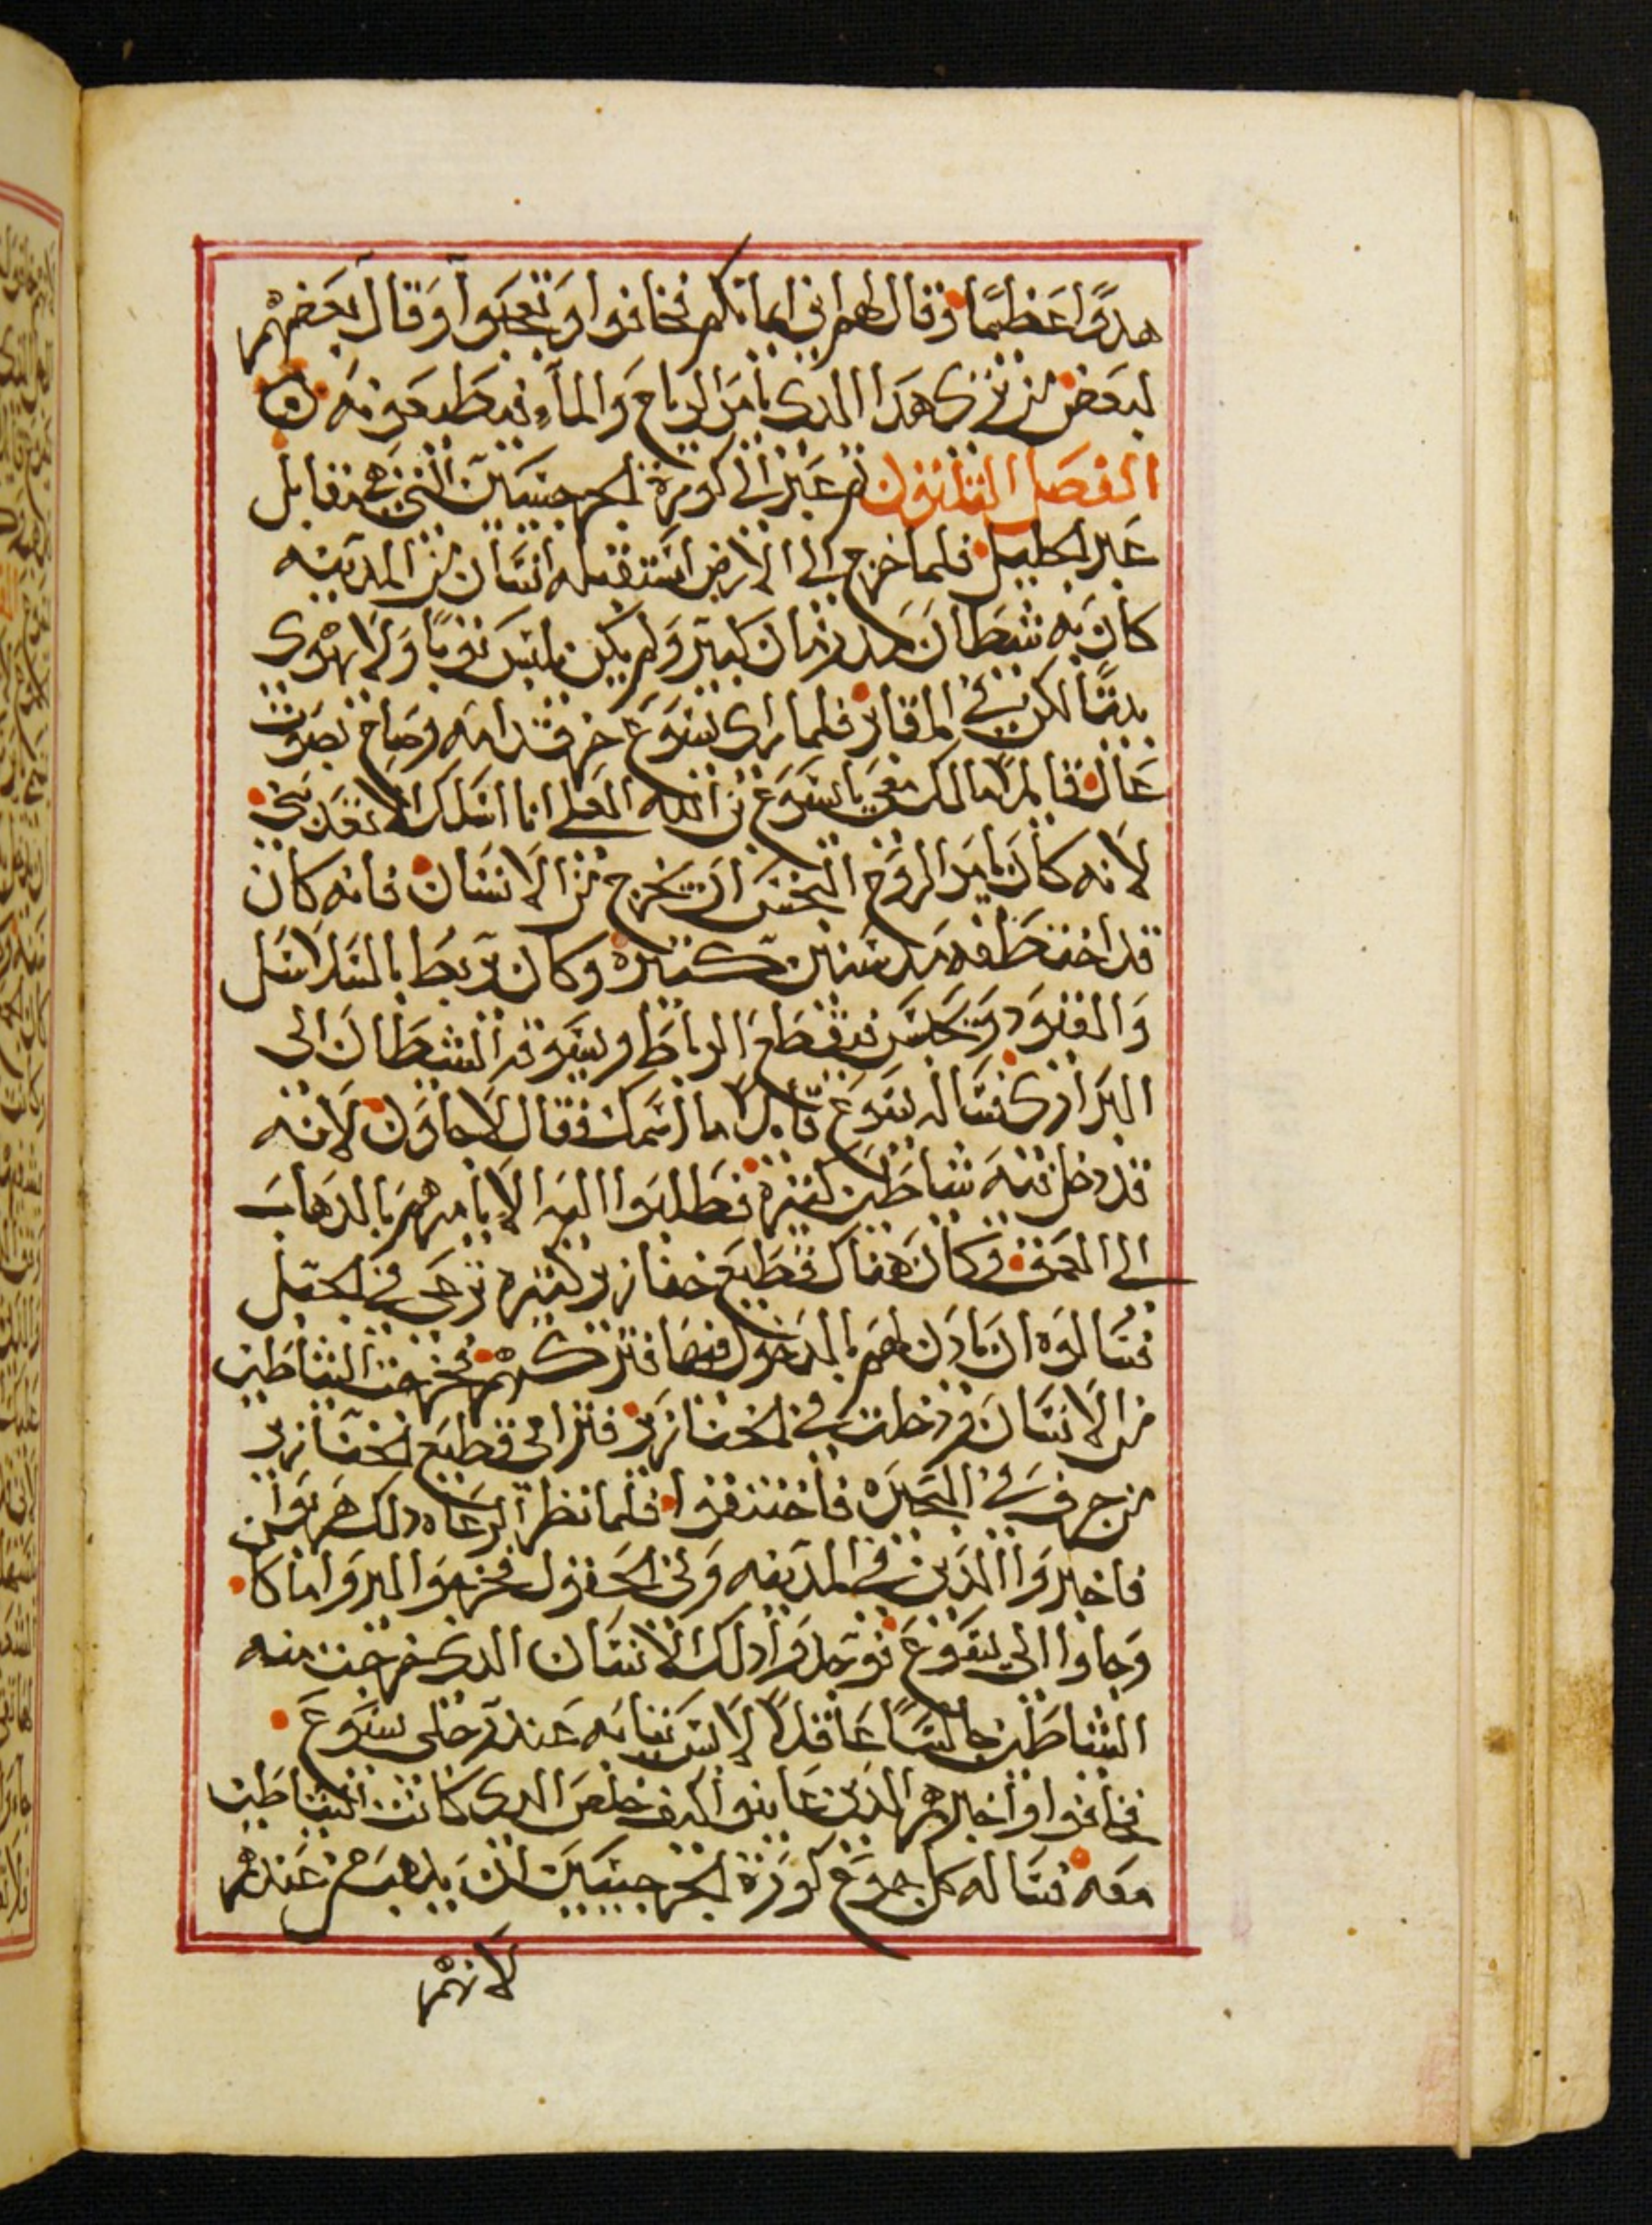 هدوًا عظيمًا وقال لهم اين ايمانكم فخافوا وتعجبوا وقال بعضهم
لبعض من ترى هذا الدى يامر الرياح والماء فيطيعونه
الفصل الثلثون ثم عبر الى كورة الجرجسيين التي هي مقابل
عبر الجليل فلما خرج الى الارض استقبله انسان من المدينه
كان به شيطان مند زمان كبير ولم يكن يلبس ثوبًا ولا يهوى
بيتًا لكن في المقابر فلما راى يسوع خر قدامه وصاح بصوت
عال قايلا ما لك معي يا يسوع بن الله العلي انا اسلك الا تعدبني
لانه كان يامر الروح النجس ان يخرج من الانسان فانه كان
قد اختطفه مند سنين كثيره وكان يربط بالسلاسل
والقيود ويحبس فيقطع الرباط ويسوقه الشيطان الى
البرارى فساله يسوع قايلا ما اسمك فقال لاجاون لانه
قد دخل فيه شياطين كثيره فطلبوا اليه الا يامرهم بالدهاب
الى العمق وكان هناك قطيع خنازير كثيره ترعى في الجبل
فسالوه ان يادن لهم بالدخول فيها فتركهم فخرجت الشياطين
من الانسان ودخلت في الخنازير فترامى قطيع الخنازير
من جرف في البحيره فاختنقوا فلما نظر الرعاه دلك هربوا
فاخبروا الذين في المدينه وفي الحقول فخرجوا ليروا ما كان
وجاوا الى يسوع فوجدوا دلك الانسان الدى خرجت منه
الشياطين جالسًا عاقلا لابس ثيابه عند رجلي يسوع
فخافوا واخبرهم الذين عاينوا كيف خلص الدى كانت الشياطين
معه فساله كل جموع كورة الجرجسيين ان يدهب من عندهم
لانهم